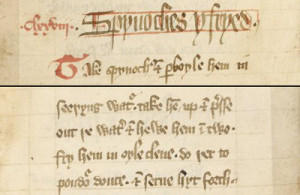 .clxxviii. Spynoches yfryed.
Take spynoch. & pboyle hem in
seeryng wat͛. take hē up & p̄sse
out þe wat͛ & hewe hem ī two.
fry hem in oyle clene. do þer to
poudo͛ douce. & serue hyt forth.